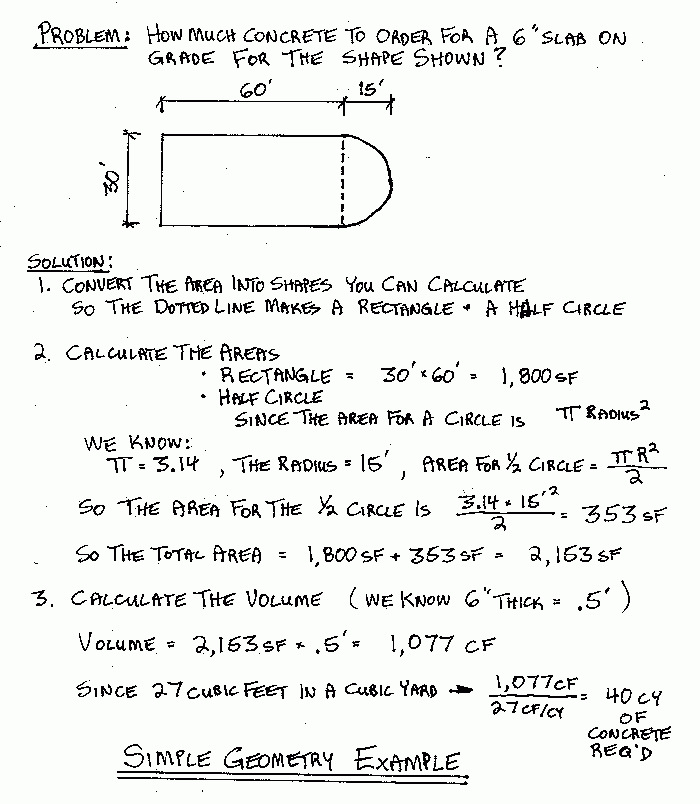 PROBLEM: HOW MUCH CONCRETE TO ORDER FOR A 6" SLAB ON
GRADE FOR THE SHAPE SHOWN?
60' 15'
30'
SOLUTION:
1. CONVERT THE AREA INTO SHAPES YOU CAN CALCULATE
SO THE DOTTED LINE MAKES A RECTANGLE + A HALF CIRCLE
2. CALCULATE THE AREAS
• RECTANGLE = 30' × 60' = 1,800 SF
• HALF CIRCLE
SINCE THE AREA FOR A CIRCLE IS π RADIUS²
WE KNOW:
π = 3.14 , THE RADIUS = 15' , AREA FOR ½ CIRCLE = πR²/2
SO THE AREA FOR THE ½ CIRCLE IS 3.14 × 15'²/2 = 353 SF
SO THE TOTAL AREA = 1,800 SF + 353 SF = 2,153 SF
3. CALCULATE THE VOLUME (WE KNOW 6" THICK = .5')
VOLUME = 2,153 SF × .5' = 1,077 CF
SINCE 27 CUBIC FEET IN A CUBIC YARD → 1,077 CF/27 CF/CY = 40 CY
OF
CONCRETE
REQ'D
SIMPLE GEOMETRY EXAMPLE